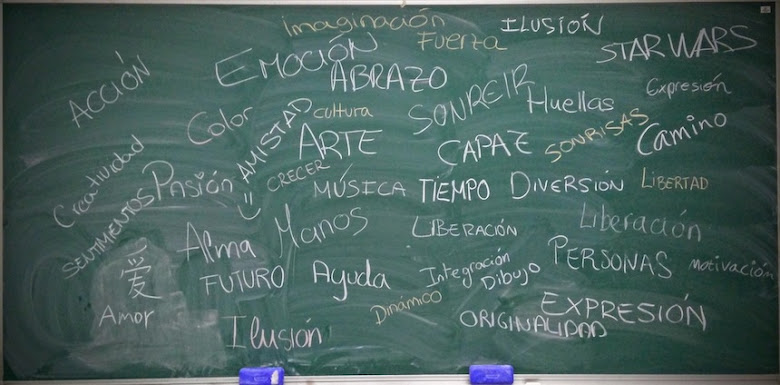 imaginación
ILUSIÓN
Fuerza
STAR WARS
EMOCIÓN
ABRAZO
ACCIÓN
SONREIR
Huellas
Expresión
Color
AMISTAD
cultura
ARTE
CAPAZ
SONRISAS
Camino
Creatividad
Pasión
CRECER
MÚSICA
TIEMPO
DIVERSIÓN
LIBERTAD
SENTIMIENTOS
Alma
Manos
LIBERACIÓN
Liberación
爱
FUTURO
Ayuda
Integración
Dibujo
PERSONAS
motivación
Amor
Dinámico
Ilusión
ORIGINALIDAD
EXPRESIÓN